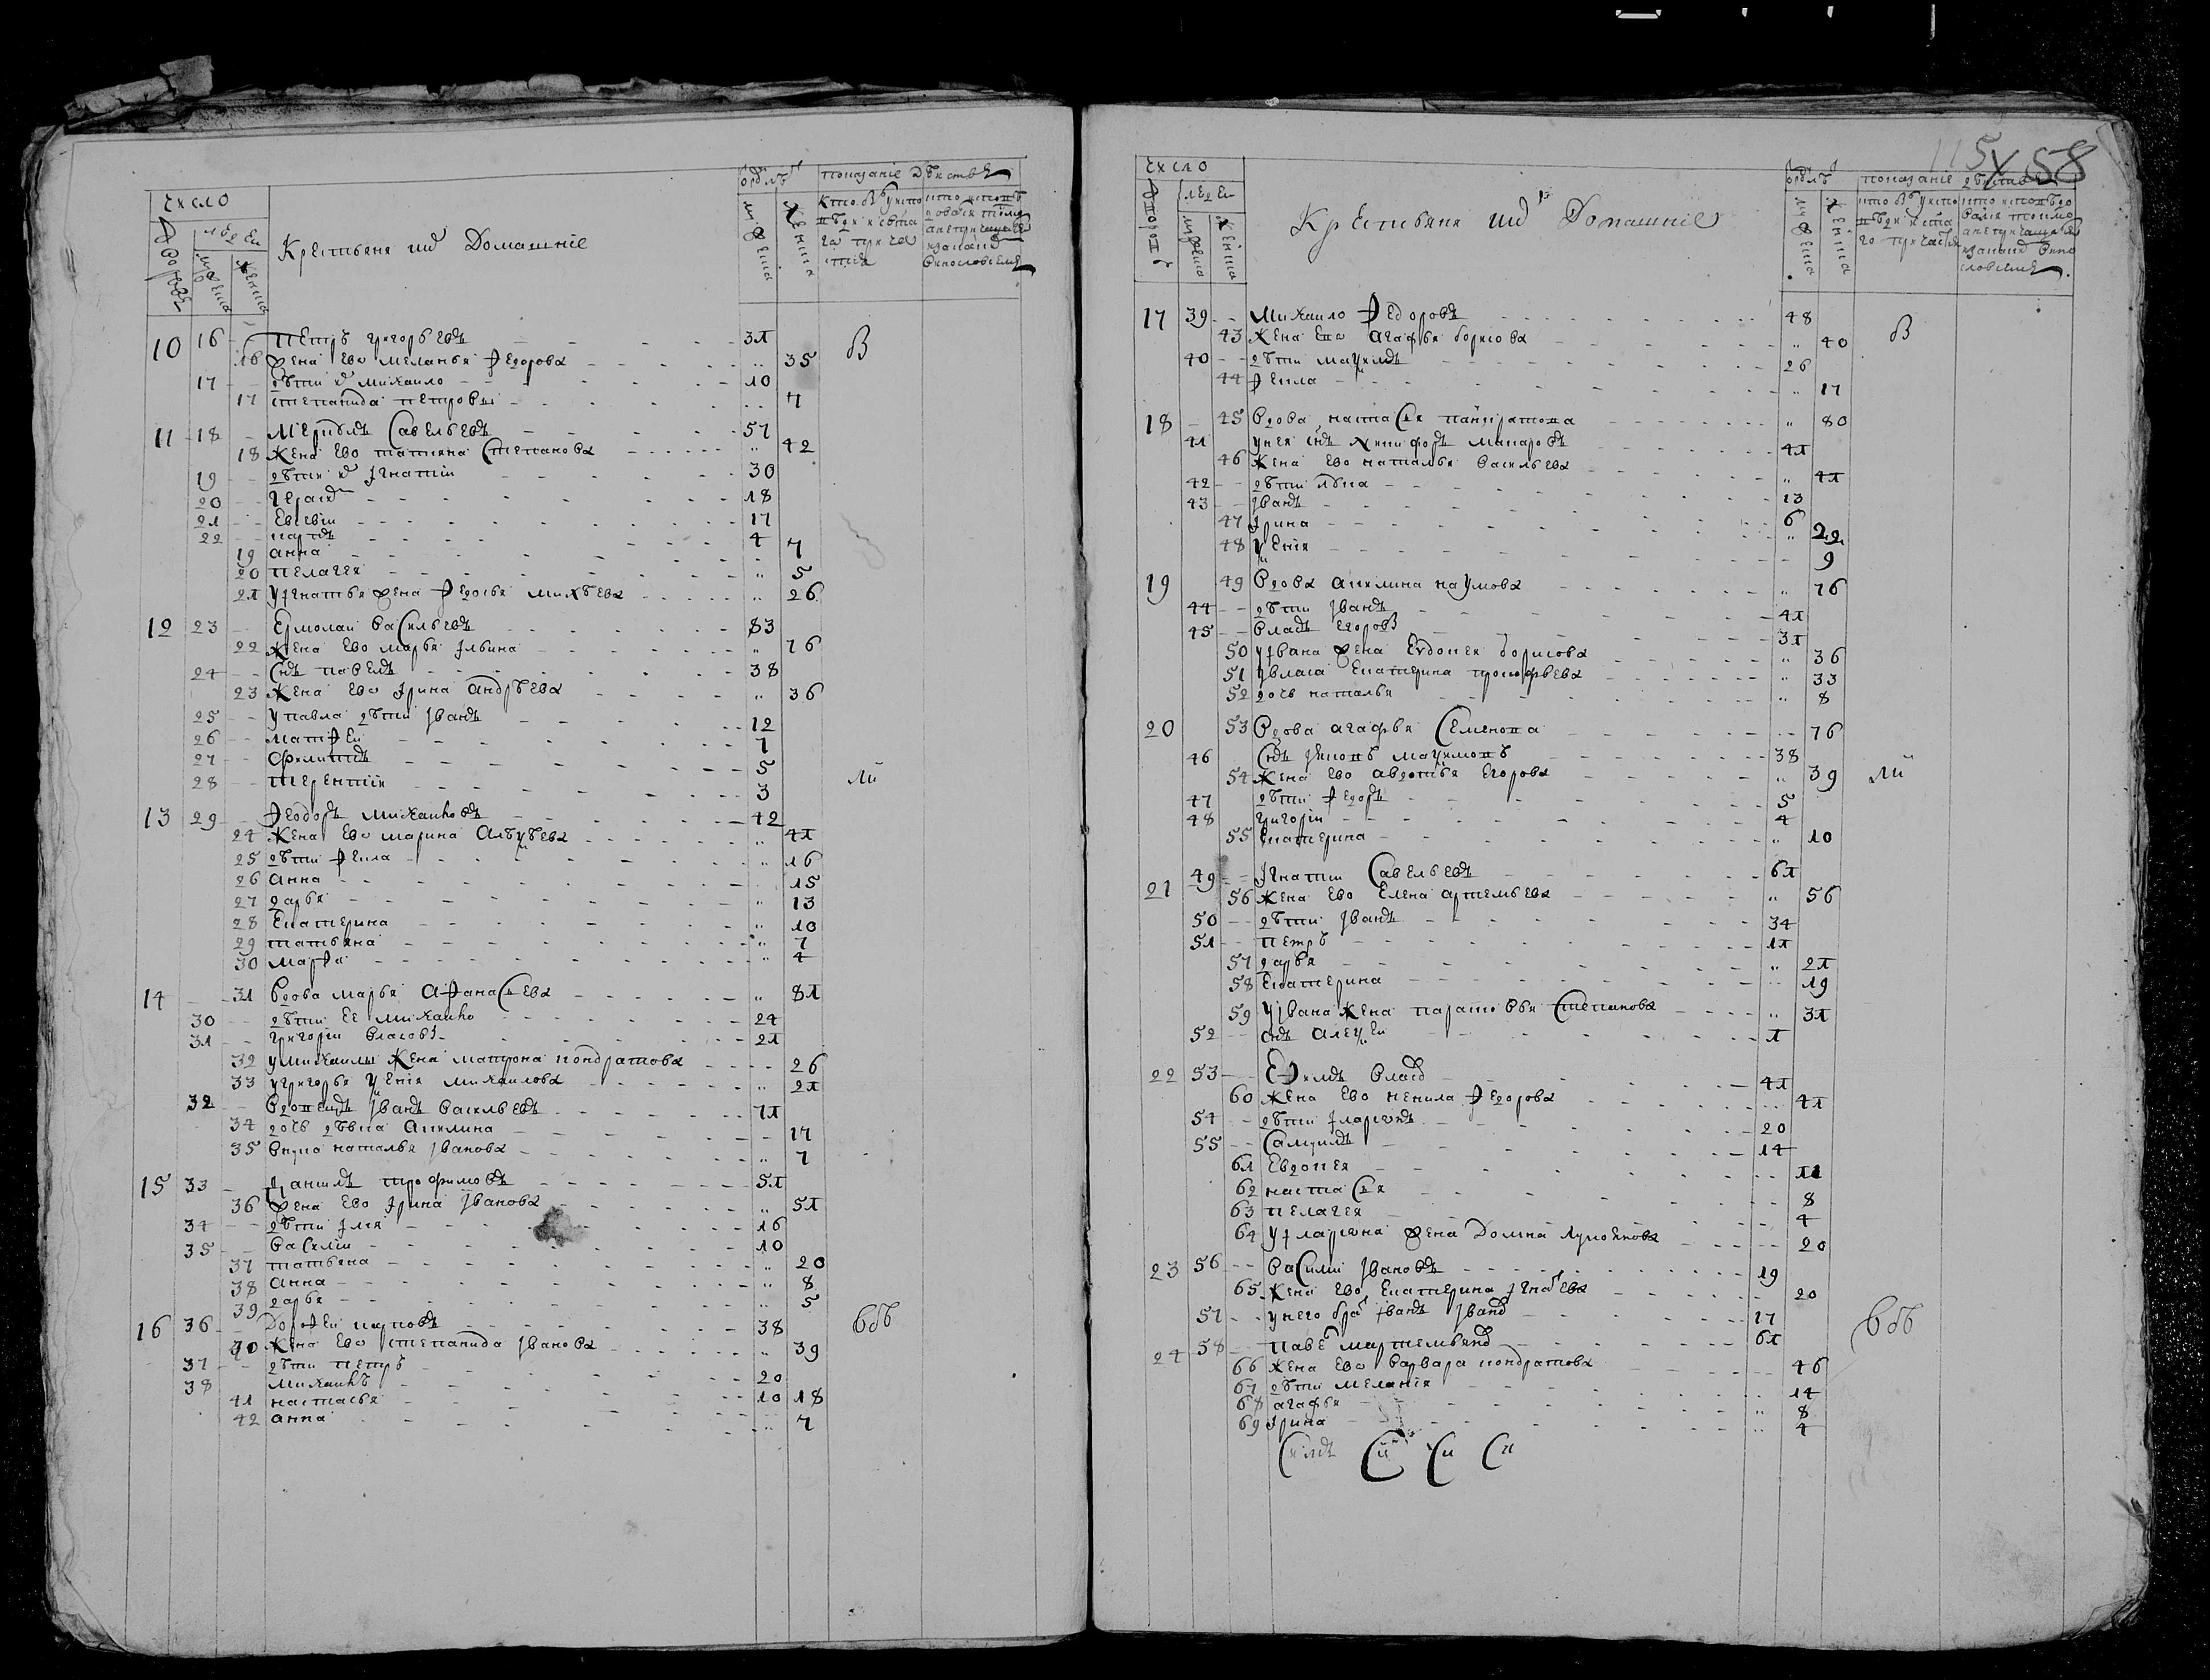 число
дворовъ
людеи
мужеска
женска
Крестьяня ихъ Домашніе
мужеска
женска
показаніе Дѣиствъ
10 16 Петръ григорьевъ 31 В
16 жена ево меланья Федорова 35
17 дѣти ихъ михаило 10
17 степанида петровы 7
11 18 Савельевъ 57
18 жена ево татияна Степанова 42
19 дѣти ихъ Iгнатіи 30
20 18
21 Евсевіи 17
22 карпъ 4
19 анна 7
20 пелагея 5
21 у Iгнатья жена Федосья михѣева 26
12 23 Ермолаи Васильевъ 83
22 жена ево марья Iльина 76
24 Снъ павелъ 38
23 жена ево Iрина андрѣева 36
25 у павла дѣти Iванъ 12
26 матфеи 7
27 филиппъ 5
28 терентіи 3 ли
13 29 Феодоръ михаиловъ 42
24 жена ево марина Алеѯѣева 41
25 дѣти Фекла 16
26 анна 15
27 дарья 13
28 Екатерина 10
29 татьяна 7
30 марфа 4
14 31 Вдова марья Афанасьева 81
30 дѣти ее михаило 24
31 григореи Власовы 21
32 у михаилы жена матрона кондратова 26
33 у григорья ѯенія михаилова 21
32 Вдовецъ Iванъ Васильевъ 71
34 дочь дѣвка Акилина 17
35 Внука наталья Iванова 7
15 33 Данилъ трофимовъ 51
36 жена ево Iрина Iванова 51
34 дѣти Iлья 16
35 Василіи 10
37 татьяна 20
38 Анна 8
39 дарья 5
16 36 Дорофеи карповъ 38
40 жена ево степанида Iванова 39
37 дѣти петръ 20
38 михаилъ 10
41 настасья 18
42 анна 7
115 58
число
людеи
мужеска
женска
Крестьяня ихъ Домашніе
мужеска
женска
показаніе дѣиствъ
17 39 Михаило Федоровъ 48 В
43 жена ево агафья борисова 40
40 дѣти маѯимъ 26
44 Фекла 17
18 45 Вдова настасья панкратова 80
41 у нея снъ никифоръ макаровъ 41
46 жена ево наталья Васильева 41
42 дѣти лука 13
43 Iванъ 6
47 Iрина 22
48 ѯенія 9
19 49 Вдова акилина наумова 76
44 дѣти Iванъ 41
45 Власъ Егоровы 31
50 у Iвана жена Евдокея борисова 36
51 у власа Екатерина прокофьева 33
52 дочь наталья 8
20 53 Вдова агафья Семенова 76
46 Снъ маѯимовъ 38
54 жена ево авдотья Егорова 39 ли
47 дѣти Федоръ 5
48 григоріи 4
55 Екатерина 10
21 49 Iгнатіи Савельевъ 61
56 жена ево Елена артемьева 56
50 дѣти Iванъ 34
51 петръ 11
57 дарья 21
58 Екатерина 19
59 у Iвана жена парасковья Степанова 31
52 снъ Алеѯеи 1
22 53 Ефимъ Власовъ 41
60 жена ево ненила Федорова 41
54 дѣти Iларионъ 20
55 Самуилъ 14
61 Евдокея 11
62 настасья 8
63 пелагея 4
64 у Iлариона жена Домна лукоянова 20
23 56 Василии Iвановъ 19
65 жена ево Екатерина Iгнатьева 20
57 у него братъ Iванъ Iвановъ 17
24 58 павелъ мартемьяновъ 61
66 жена ево Варвара кондратова 46
67 дѣти меланія 14
68 агафья 8
69 Iрина 4